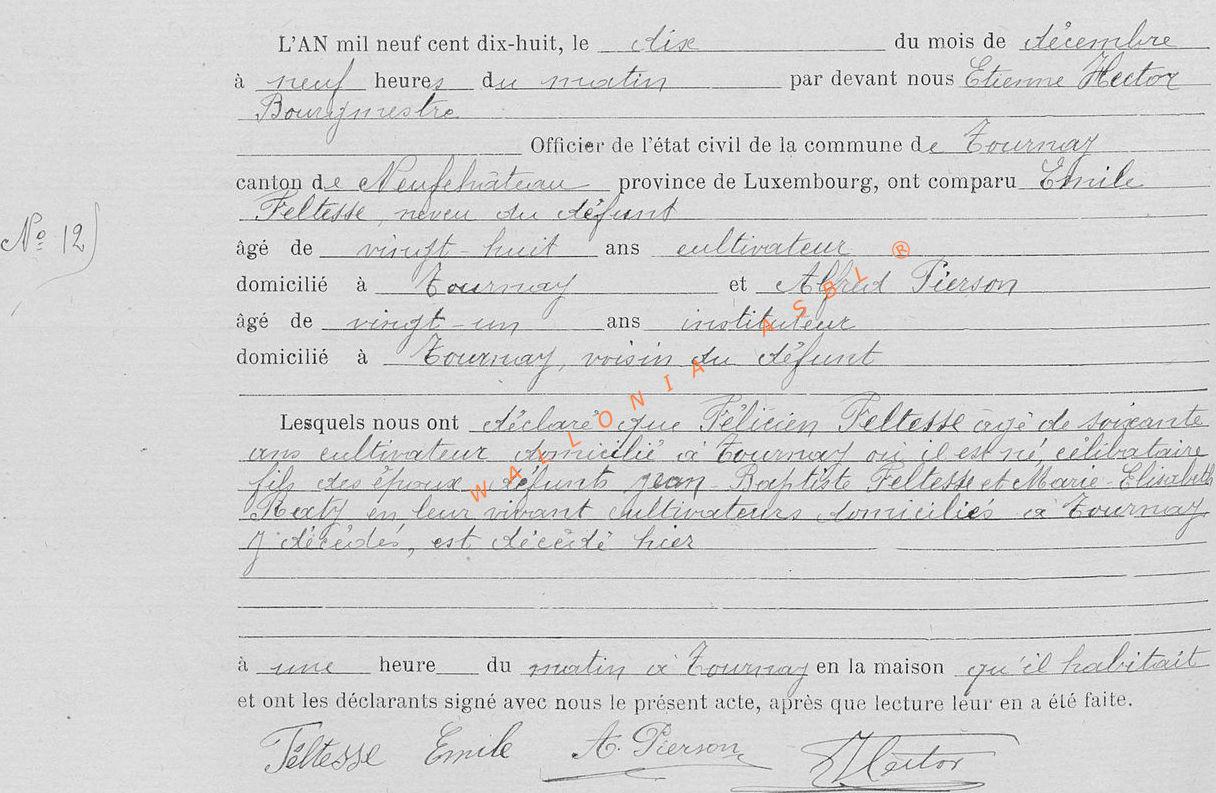 L'AN mil neuf cent dix-huit, le dix du mois de décembre
à neuf heures du matin par devant nous Etienne Hector
Bourgmestre
Officier de l'état civil de la commune de Tournay
canton de Neufchâteau province de Luxembourg, ont comparu Emile
Feltesse, neveu du défunt
No 12)
âgé de vingt-huit ans cultivateur
domicilié à Tournay et Alfred Pierson
âgé de vingt-un ans instituteur
domicilié à Tournay, voisin du défunt
Lesquels nous ont déclaré que Félicien Feltesse âgé de soixante
ans cultivateur domicilié à Tournay où il est né, célibataire
fils des époux défunts Jean-Baptiste Feltesse et Marie-Elisabeth
en leur vivant cultivateurs domiciliés à Tournay
y décédés, est décédé hier
à une heure du matin à Tournay en la maison qu'il habitait
et ont les déclarants signé avec nous le présent acte, après que lecture leur en a été faite.
Feltesse Emile A. Pierson Hector
WALLONIA ASBL ®